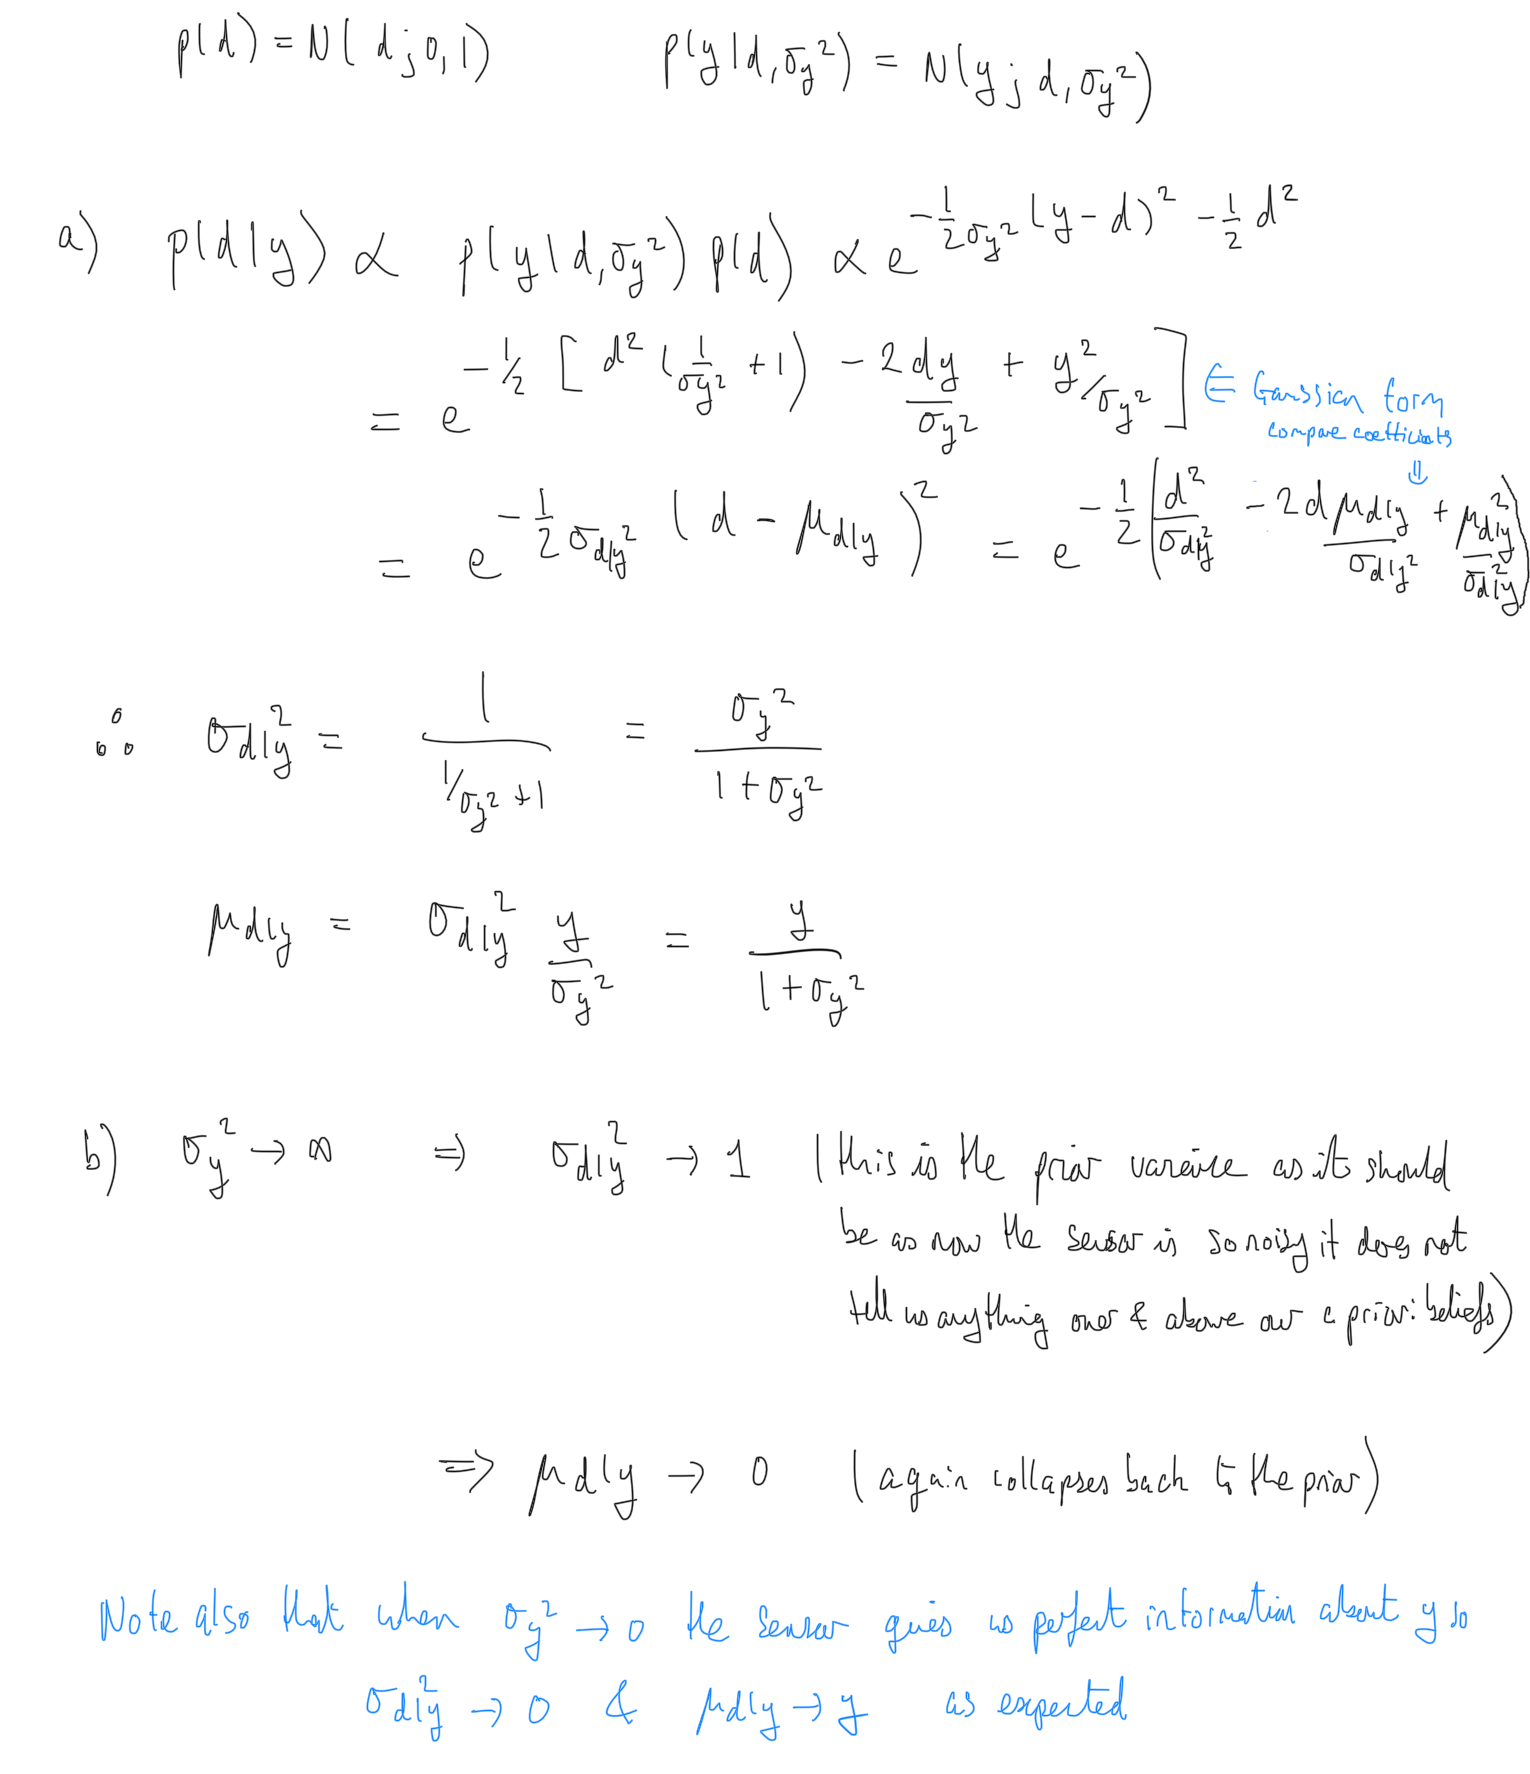 p(d) = N(d; 0, 1)    p(y|d, σ_y²) = N(y; d, σ_y²)
a) p(d|y) ∝ p(y|d, σ_y²) p(d) ∝ e^{-1/(2σ_y²) (y-d)² - 1/2 d²}
= e^{-1/2 [d² (1/σ_y² + 1) - 2dy/σ_y² + y²/σ_y²]} ⇐ Gaussian form
compare coefficients
⇓
= e^{-1/(2σ_{d|y}²) (d - μ_{d|y})²} = e^{-1/2 (d²/σ_{d|y}² - 2dμ_{d|y}/σ_{d|y}² + μ_{d|y}²/σ_{d|y}²)}
∴ σ_{d|y}² = 1/(1/σ_y² + 1) = σ_y²/(1 + σ_y²)
μ_{d|y} = σ_{d|y}² y/σ_y² = y/(1 + σ_y²)
b) σ_y² → ∞ ⇒ σ_{d|y}² → 1 (this is the prior variance as it should
be as now the sensor is so noisy it does not
tell us anything over & above our a priori beliefs)
⇒ μ_{d|y} → 0 (again collapses back to the prior)
Note also that when σ_y² → 0 the sensor gives us perfect information about y so
σ_{d|y}² → 0 & μ_{d|y} → y as expected